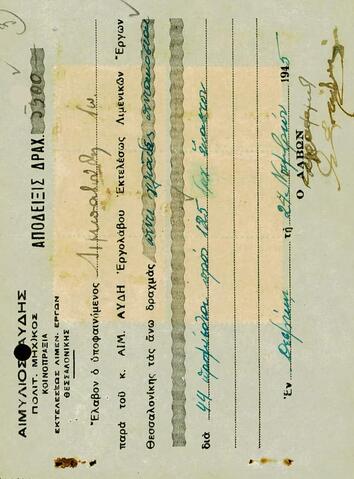 ΑΙΜΥΛΙΟΣ ΑΥΔΗΣ
ΠΟΛΙΤ. ΜΗΧ/ΚΟΣ
ΚΟΙΝΟΠΡΑΞΙΑ
ΕΚΤΕΛΕΣΕΩΣ ΛΙΜΕΝ. ΕΡΓΩΝ
ΘΕΣΣΑΛΟΝΙΚΗΣ
ΑΠΟΔΕΙΞΙΣ ΔΡΑΧ. 5500
Ἔλαβον ὁ ὑποφαινόμενος
παρὰ τοῦ κ. ΑΙΜ. ΑΥΔΗ Ἐργολάβου Ἐκτελέσεως Λιμενικῶν Ἔργων
Θεσσαλονίκης τὰς ἄνω δραχμὰς πέντε χιλιάδες πεντακοσίας
διὰ 44 πρὸς 125 ἕκαστον
Ἐν Θεσ/νίκῃ τῇ 24 Νοεμβρίου 1945
Ο ΛΑΒΩΝ